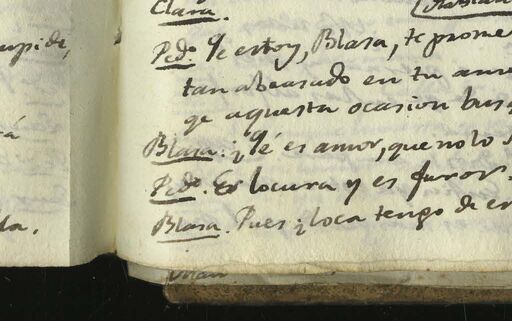 da.
Clara.
Pedº. Qe estoy, Blasa, te prome
tan abrasado en tu am
qe aquesta ocasion bus
Blasa: ¿Qé es amor, que no lo
Pedº. Es locura y es furor.
Blasa. Pues ¿loca tengo de